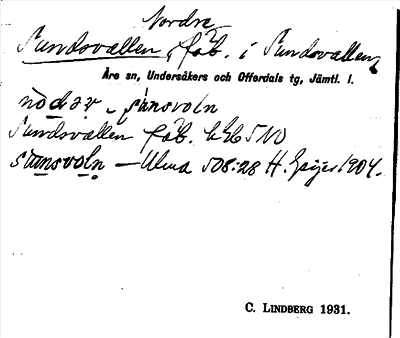 Nordre
Sundsvallen, fäb. i Sundsvallen
Åre sn, Undersåkers och Offerdals tg, Jämtl. l.
nɷdər - sɷnsvoln
Sundsvallen fäb. 46 5 NO
sɷnsvoln — Ulma 508:28 H. Geijer 1904.
C. LINDBERG 1931.